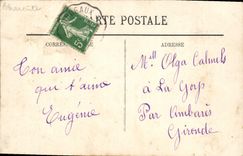 CARTE POSTALE
CORRESPONDANCE
ADRESSE
Ton amie
qui t'aime
Eugénie
Mlle Olga Calmels
à La Gorp
Par Ambarès
Gironde